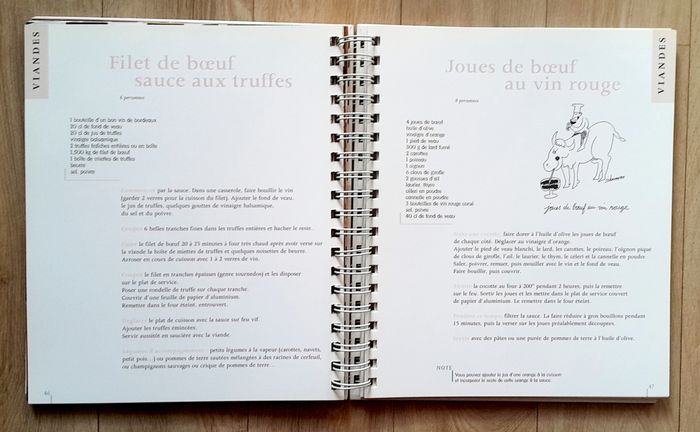 VIANDES
Filet de bœuf
sauce aux truffes
6 personnes
1 bouteille d'un bon vin de bordeaux
20 cl de fond de veau
20 cl de jus de truffes
vinaigre balsamique
2 truffes fraîches entières ou en boîte
1,500 kg de filet de bœuf
1 boîte de miettes de truffes
beurre
sel, poivre
Commencer par la sauce. Dans une casserole, faire bouillir le vin
(garder 2 verres pour la cuisson du filet). Ajouter le fond de veau,
le jus de truffes, quelques gouttes de vinaigre balsamique,
du sel et du poivre.
Couper 6 belles tranches fines dans les truffes entières et hacher le reste.
Cuire le filet de bœuf 20 à 25 minutes à four très chaud après avoir versé sur
la viande la boîte de miettes de truffes et quelques noisettes de beurre.
Arroser en cours de cuisson avec 1 à 2 verres de vin.
Couper le filet en tranches épaisses (genre tournedos) et les disposer
sur le plat de service.
Poser une rondelle de truffe sur chaque tranche.
Couvrir d'une feuille de papier d'aluminium.
Remettre dans le four éteint, entrouvert.
Déglacer le plat de cuisson avec la sauce sur feu vif.
Ajouter les truffes émincées.
Servir aussitôt en saucière avec la viande.
Légumes d'accompagnement : petits légumes à la vapeur (carottes, navets,
petit pois...) ou pommes de terre sautées mélangées à des racines de cerfeuil,
ou champignons sauvages ou crique de pommes de terre...
46
VIANDES
Joues de bœuf
au vin rouge
8 personnes
4 joues de bœuf
huile d'olive
vinaigre d'orange
1 pied de veau
300 g de lard fumé
2 carottes
1 poireau
1 oignon
6 clous de girofle
2 gousses d'ail
laurier, thym
céleri en poudre
cannelle en poudre
2 bouteilles de vin rouge corsé
sel, poivre
40 cl de fond de veau
joues de bœuf au vin rouge
Dans une cocotte, faire dorer à l'huile d'olive les joues de bœuf
de chaque côté. Déglacer au vinaigre d'orange.
Ajouter le pied de veau blanchi, le lard, les carottes, le poireau, l'oignon piqué
de clous de girofle, l'ail, le laurier, le thym, le céleri et la cannelle en poudre.
Saler, poivrer, remuer, puis mouiller avec le vin et le fond de veau.
Faire bouillir, puis couvrir.
Mettre la cocotte au four à 200° pendant 2 heures, puis la remettre
sur le feu. Sortir les joues et les mettre dans le plat de service couvert
de papier d'aluminium. Le remettre dans le four éteint.
Pendant ce temps, filtrer la sauce. La faire réduire à gros bouillons pendant
15 minutes, puis la verser sur les joues préalablement découpées.
Servir avec des pâtes ou une purée de pommes de terre à l'huile d'olive.
NOTE
Vous pouvez ajouter le jus d'une orange à la cuisson
et incorporer le zeste de cette orange à la sauce.
47